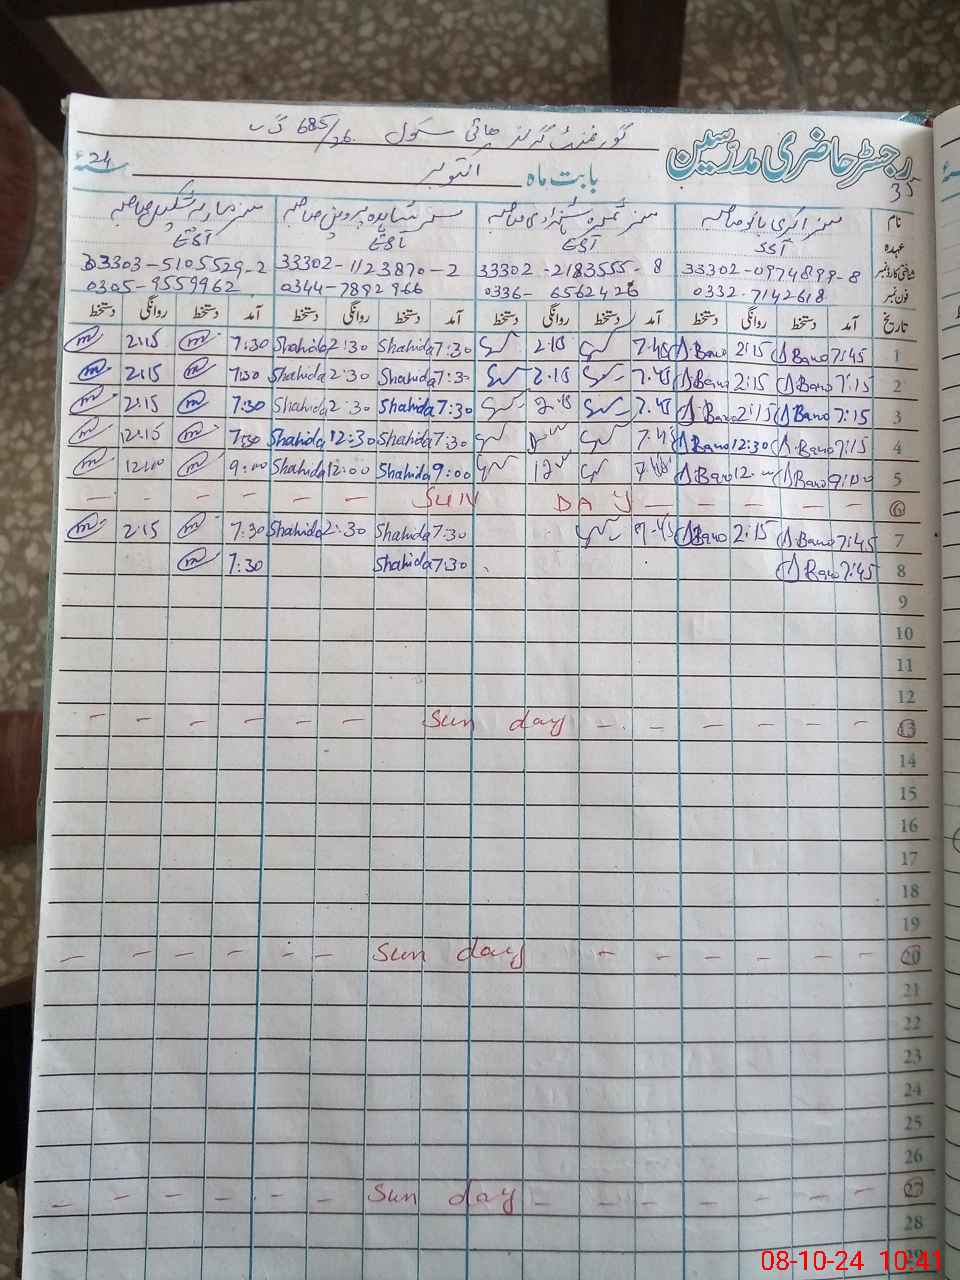 گورنمنٹ گرلز ہائی سکول 685/26 گ ب
رجسٹر حاضری مدرسین
35
بابت ماہ اکتوبر 24 سنہ
نام
عہدہ SST EST EST EST
شناختی کارڈ نمبر 33302-0974899-8 33302-2183555-8 33302-1123870-2 33303-5105529-2
فون نمبر 0332-7142618 0336-6562426 0344-7892966 0305-9559962
تاریخ آمد دستخط روانگی دستخط آمد دستخط روانگی دستخط آمد دستخط روانگی دستخط آمد دستخط روانگی دستخط
1 7:45 A Bano 2:15 A Bano 7.45 2.15 7:30 Shahida 2:30 Shahida 7:30 2:15
2 7:15 A Bano 2:15 A Bano 7.45 2.15 7:30 Shahida 2:30 Shahida 7:30 2:15
3 7:15 A Bano 2:15 A Bano 7.45 7:30 Shahida 2:30 Shahida 7:30 2:15
4 7:15 A Bano 12:30 A Bano 7.45 7:30 Shahida 12:30 Shahida 7:30 12:15
5 9:00 A Bano 12:00 A Bano 9:00 Shahida 12:00 Shahida 9:00 12:00
6 — — — — SUN DAY — — — — — —
7 7:45 A Bano 2:15 A Bano 7.45 7:30 Shahida 2:30 Shahida 7:30 2:15
8 7:45 A Bano 7:30 Shahida 7:30
9
10
11
12
13 — — — — — — Sun day — — — — — —
14
15
16
17
18
19
20 — — — — — — Sun day — — — — — —
21
22
23
24
25
26
27 — — — — — — — Sun day — — — — — —
28
29
08-10-24 10:41